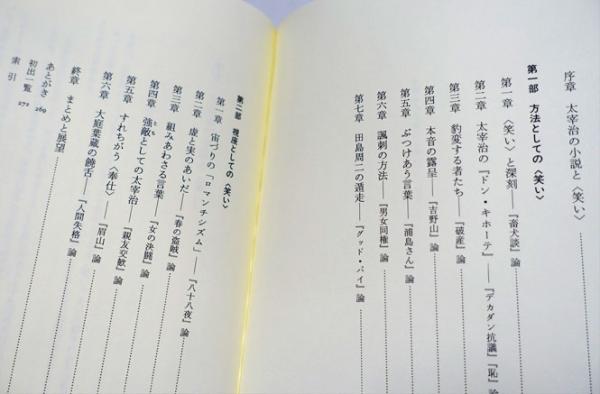 序章 太宰治の小説と〈笑い〉
第一部 方法としての〈笑い〉
第一章 〈笑い〉と深刻――『畜犬談』論
第二章 太宰治の『ドン・キホーテ』――『デカダン抗議』『恥』論
第三章 豹変する者たち――『破産』論
第四章 本音の露呈――『吉野山』論
第五章 ぶつけあう言葉――『浦島さん』論
第六章 諷刺の方法――『男女同権』論
第七章 田島周二の遁走――『グッド・バイ』論
第二部 視座としての〈笑い〉
第一章 宙づりの「ロマンチシズム」――『八十八夜』論
第二章 虚と実のあいだ――『春の盗賊』論
第三章 組みあわさる言葉――『女の決闘』論
第四章 強敵としての太宰治――『親友交歓』論
第五章 すれちがう〈奉仕〉――『眉山』論
第六章 大庭葉蔵の饒舌――『人間失格』論
終章 まとめと展望
あとがき 269
初出一覧 272
索引